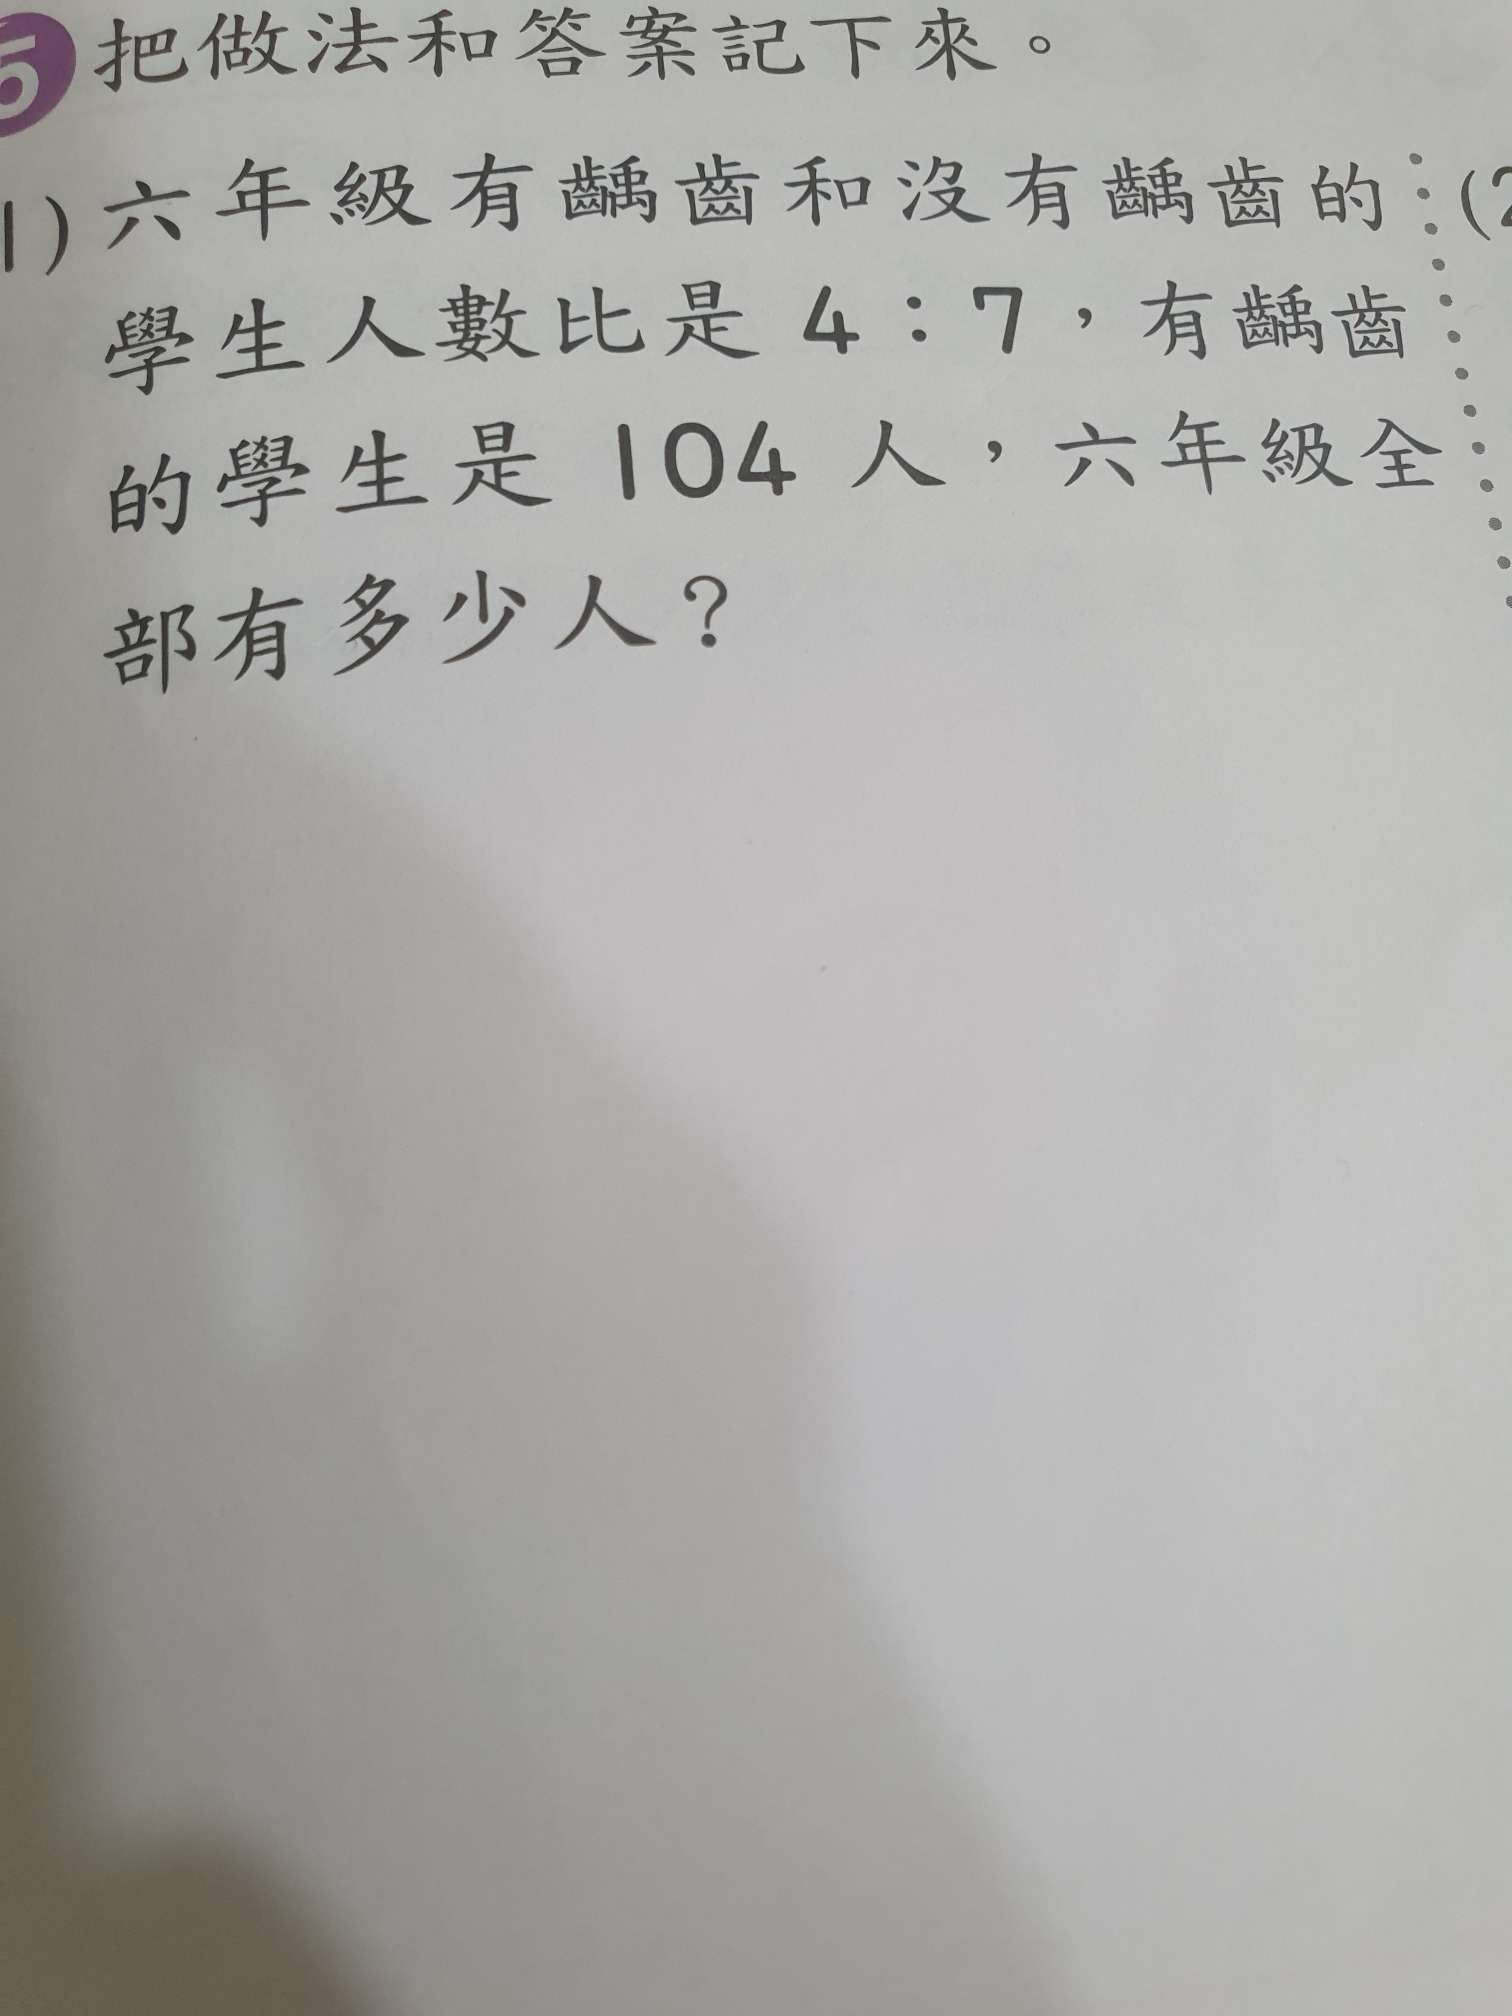 5 把做法和答案記下來。
1) 六年級有齲齒和沒有齲齒的
學生人數比是 4：7，有齲齒
的學生是 104 人，六年級全
部有多少人？
(2